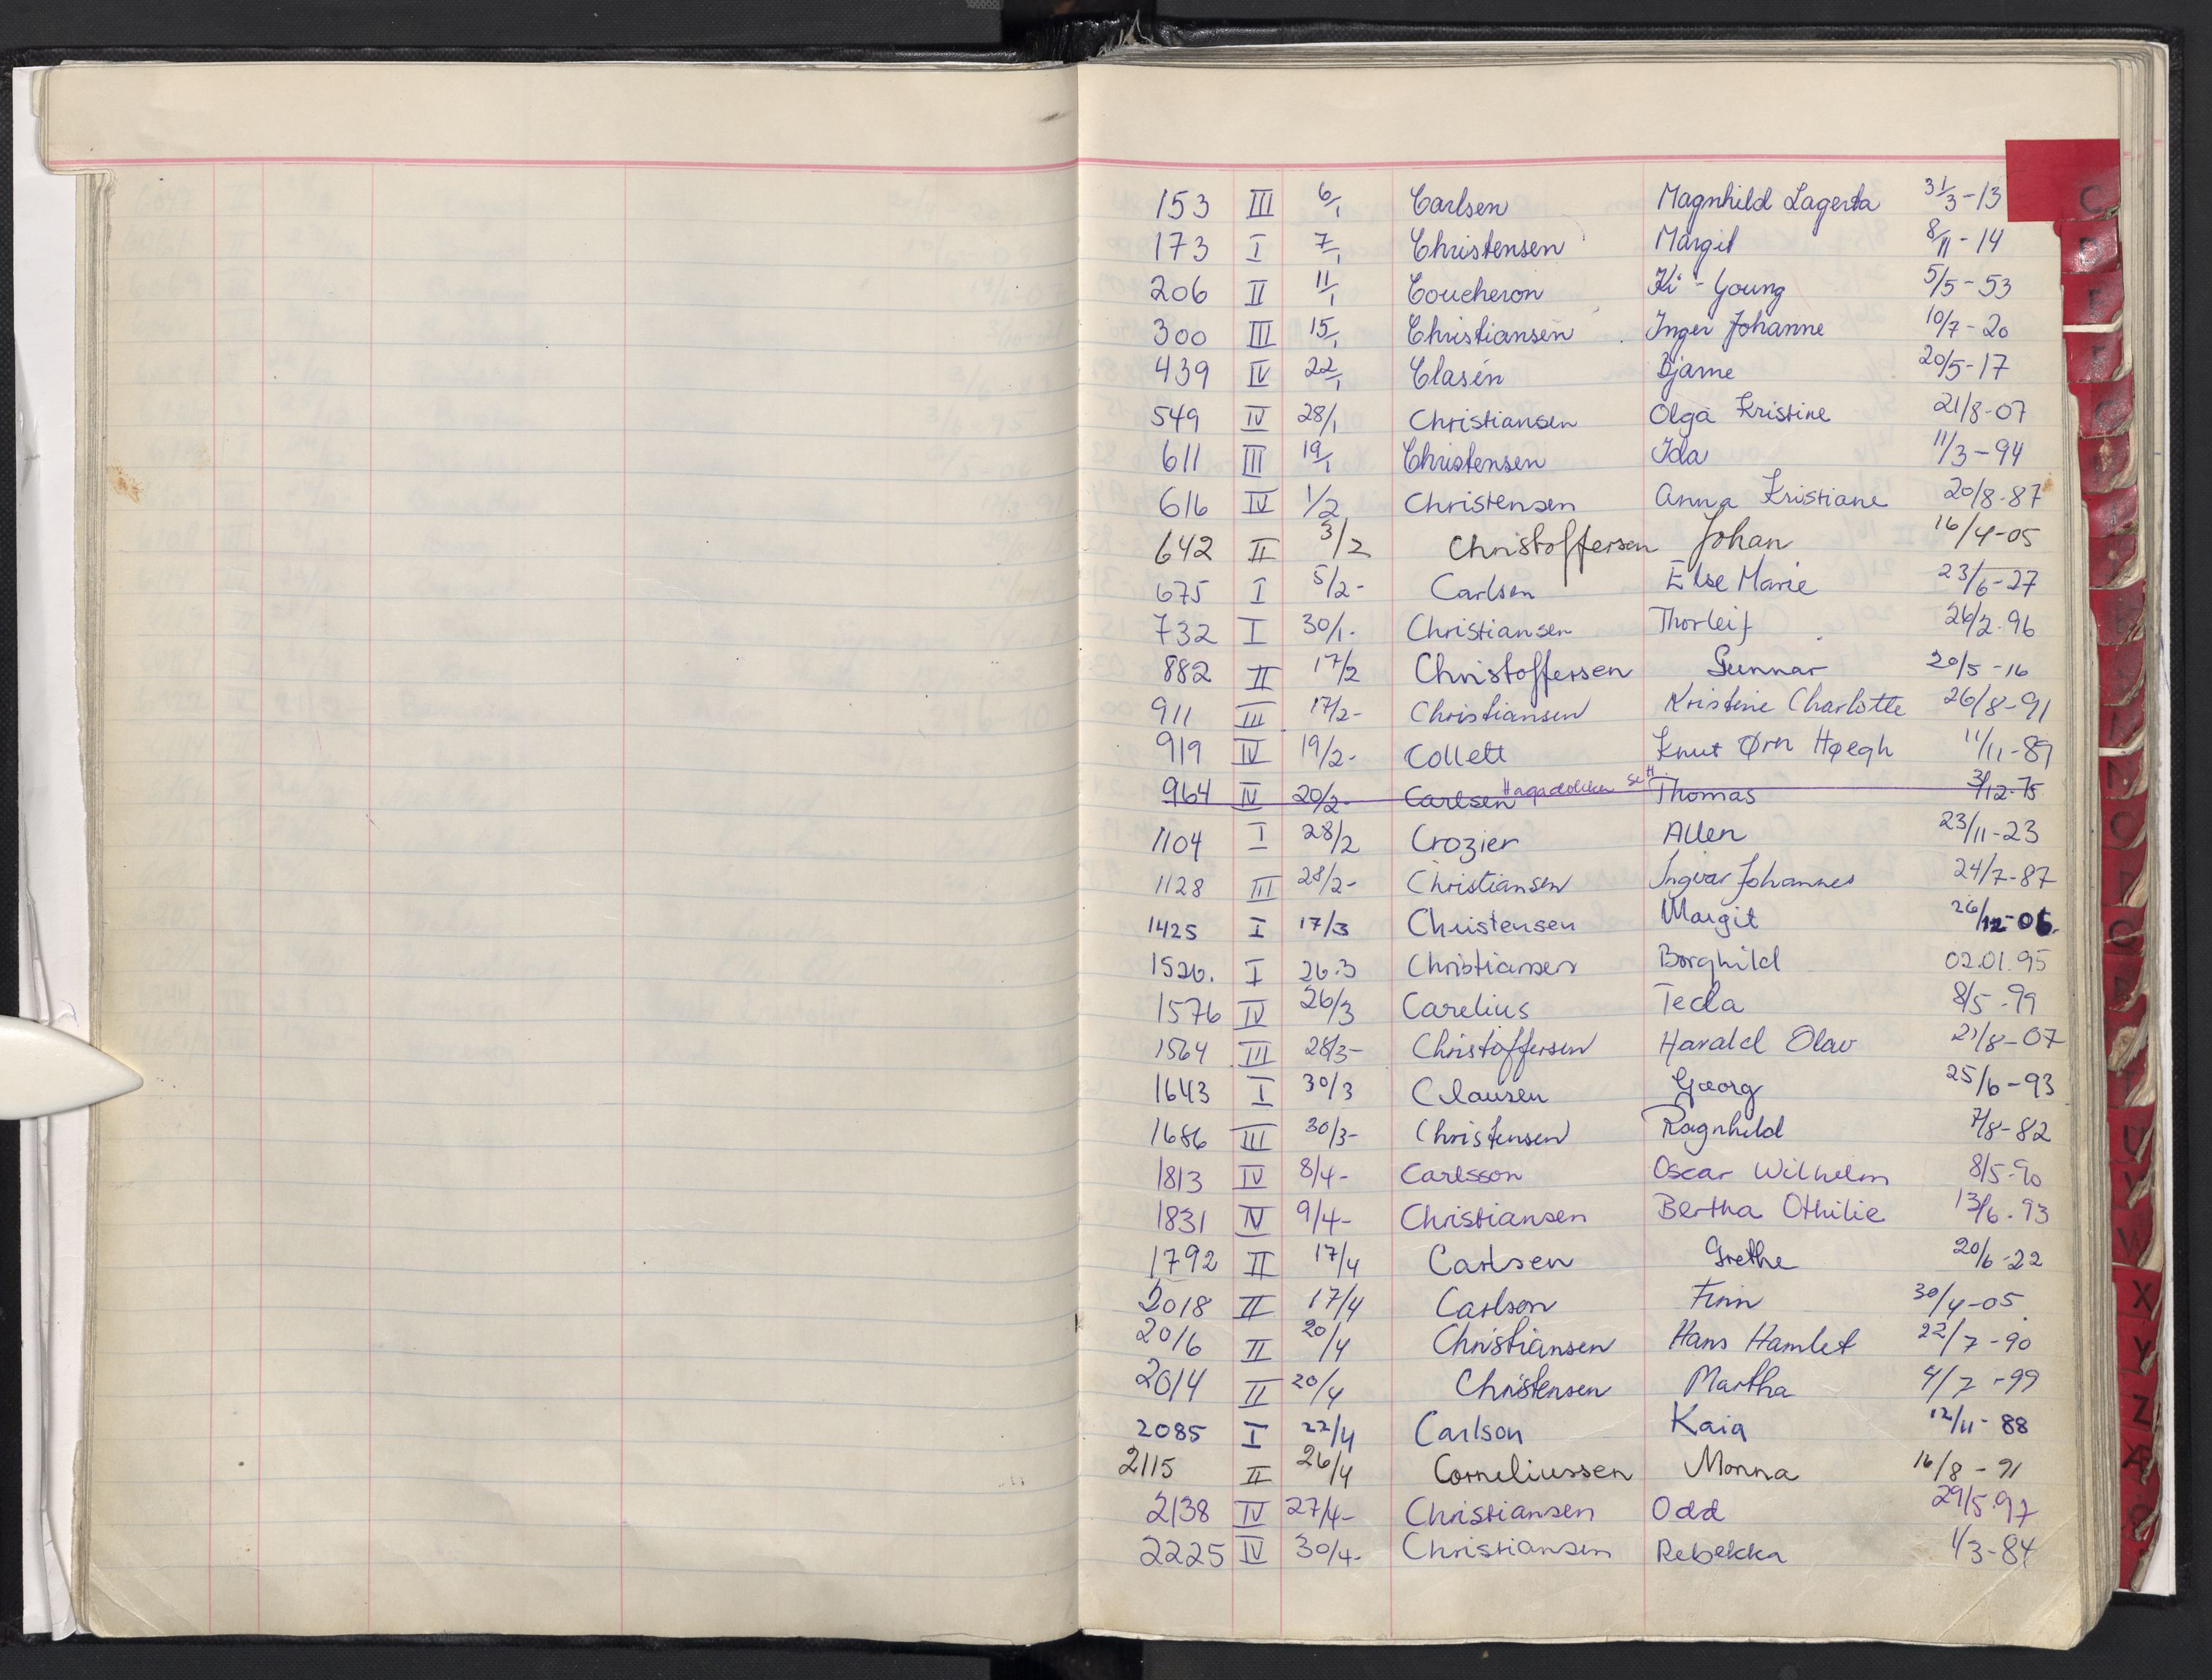 153 III 6/1 Carlsen Magnhild Lagerta 31/3-13
173 I 7/1 Christensen Margit 8/11-14
206 II 11/1 Coucheron Ki-Young 5/5-53
300 III 15/1 Christiansen Inger Johanne 10/7-20
439 IV 22/1 Clasen Bjarne 20/5-17
549 IV 28/1 Christiansen Olga Kristine 21/8-07
611 III 19/1 Christensen Ida 11/3-94
616 IV 1/2 Christensen Anna Kristiane 20/8-87
642 II 3/2 Christoffersen Johan 16/4-05
675 I 5/2- Carlsen Else Marie 23/6-27
732 I 30/1- Christiansen Thorleif 26/2-96
882 II 17/2 Christoffersen Gunnar 20/5-16
911 III 17/2- Christiansen Kristine Charlotte 26/8-91
919 IV 19/2- Collett Knut Ørn Høegh 11/11-89
964 IV 20/2- Carlsen se H Thomas 3/12-75
1104 I 28/2 Crozier Allen 23/11-23
1128 III 28/2- Christiansen Ingvar Johannes 24/7-87
1425 I 17/3 Christensen Margit 26/12-06.
1526. I 26.3 Christiansen Borghild 02.01.95
1576 IV 26/3 Carelius Tecla 8/5-99
1564 III 28/3- Christoffersen Harald Olav 21/8-07
1643 I 30/3 Clausen Georg 25/6-93
1686 III 30/3- Christensen Ragnhild 7/8-82
1813 IV 8/4- Carlsson Oscar Wilhelm 8/5-90
1831 IV 9/4- Christiansen Bertha Othilie 13/6-93
1792 II 17/4 Carlsen Grethe 20/6-22
2018 II 17/4 Carlson Finn 30/4-05
2016 II 20/4 Christiansen Hans Hamlet 22/7-90
2014 II 20/4 Christensen Martha 4/7-99
2085 I 22/4 Carlson Kaia 12/11-88
2115 II 26/4 Corneliussen Monna 16/8-91
2138 IV 27/4- Christiansen Odd 29/5-97
2225 IV 30/4- Christiansen Rebekka 1/3-84
C
O
P
Q
U
V
W
X
Y
Z